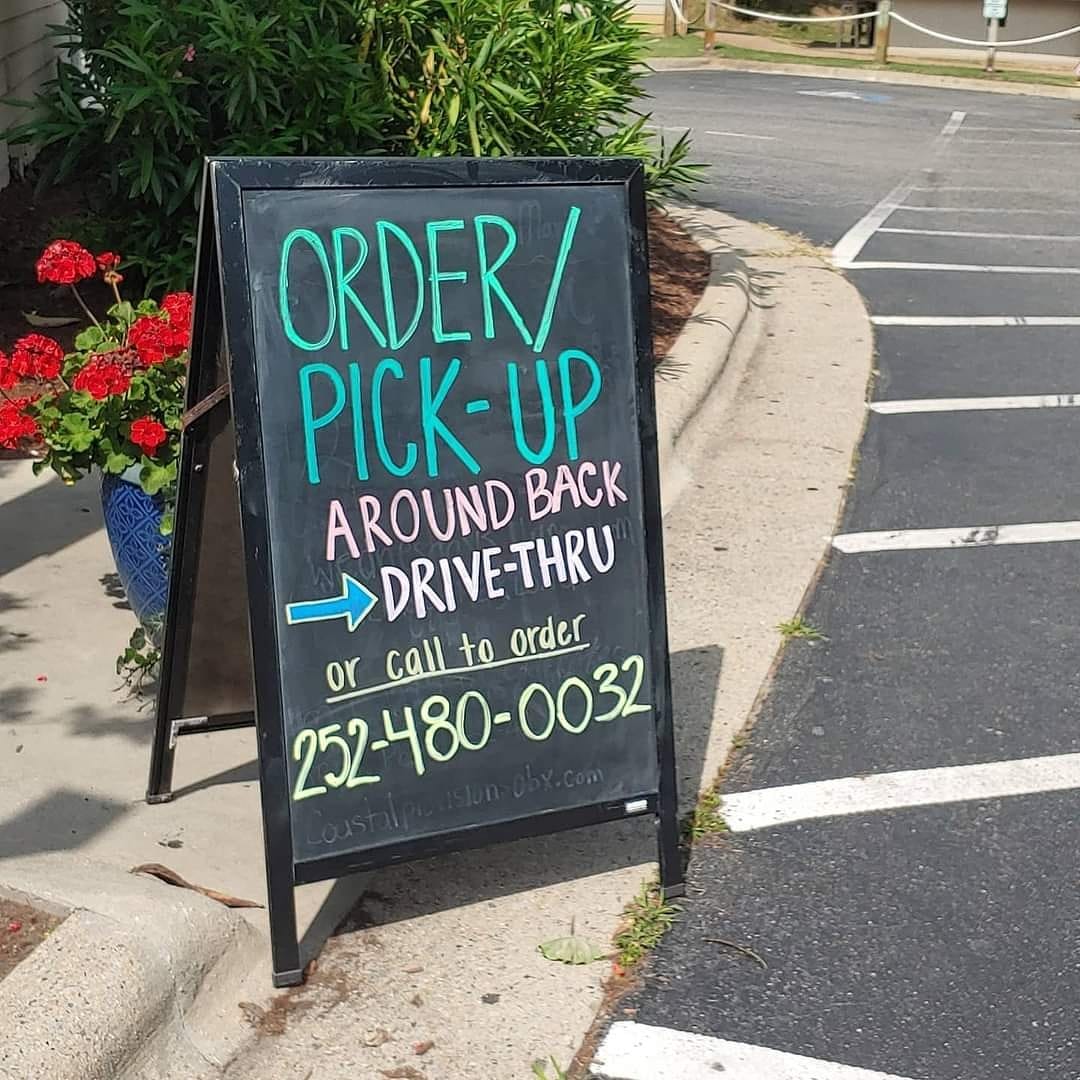 ORDER/
PICK-UP
AROUND BACK
DRIVE-THRU
or call to order
252-480-0032